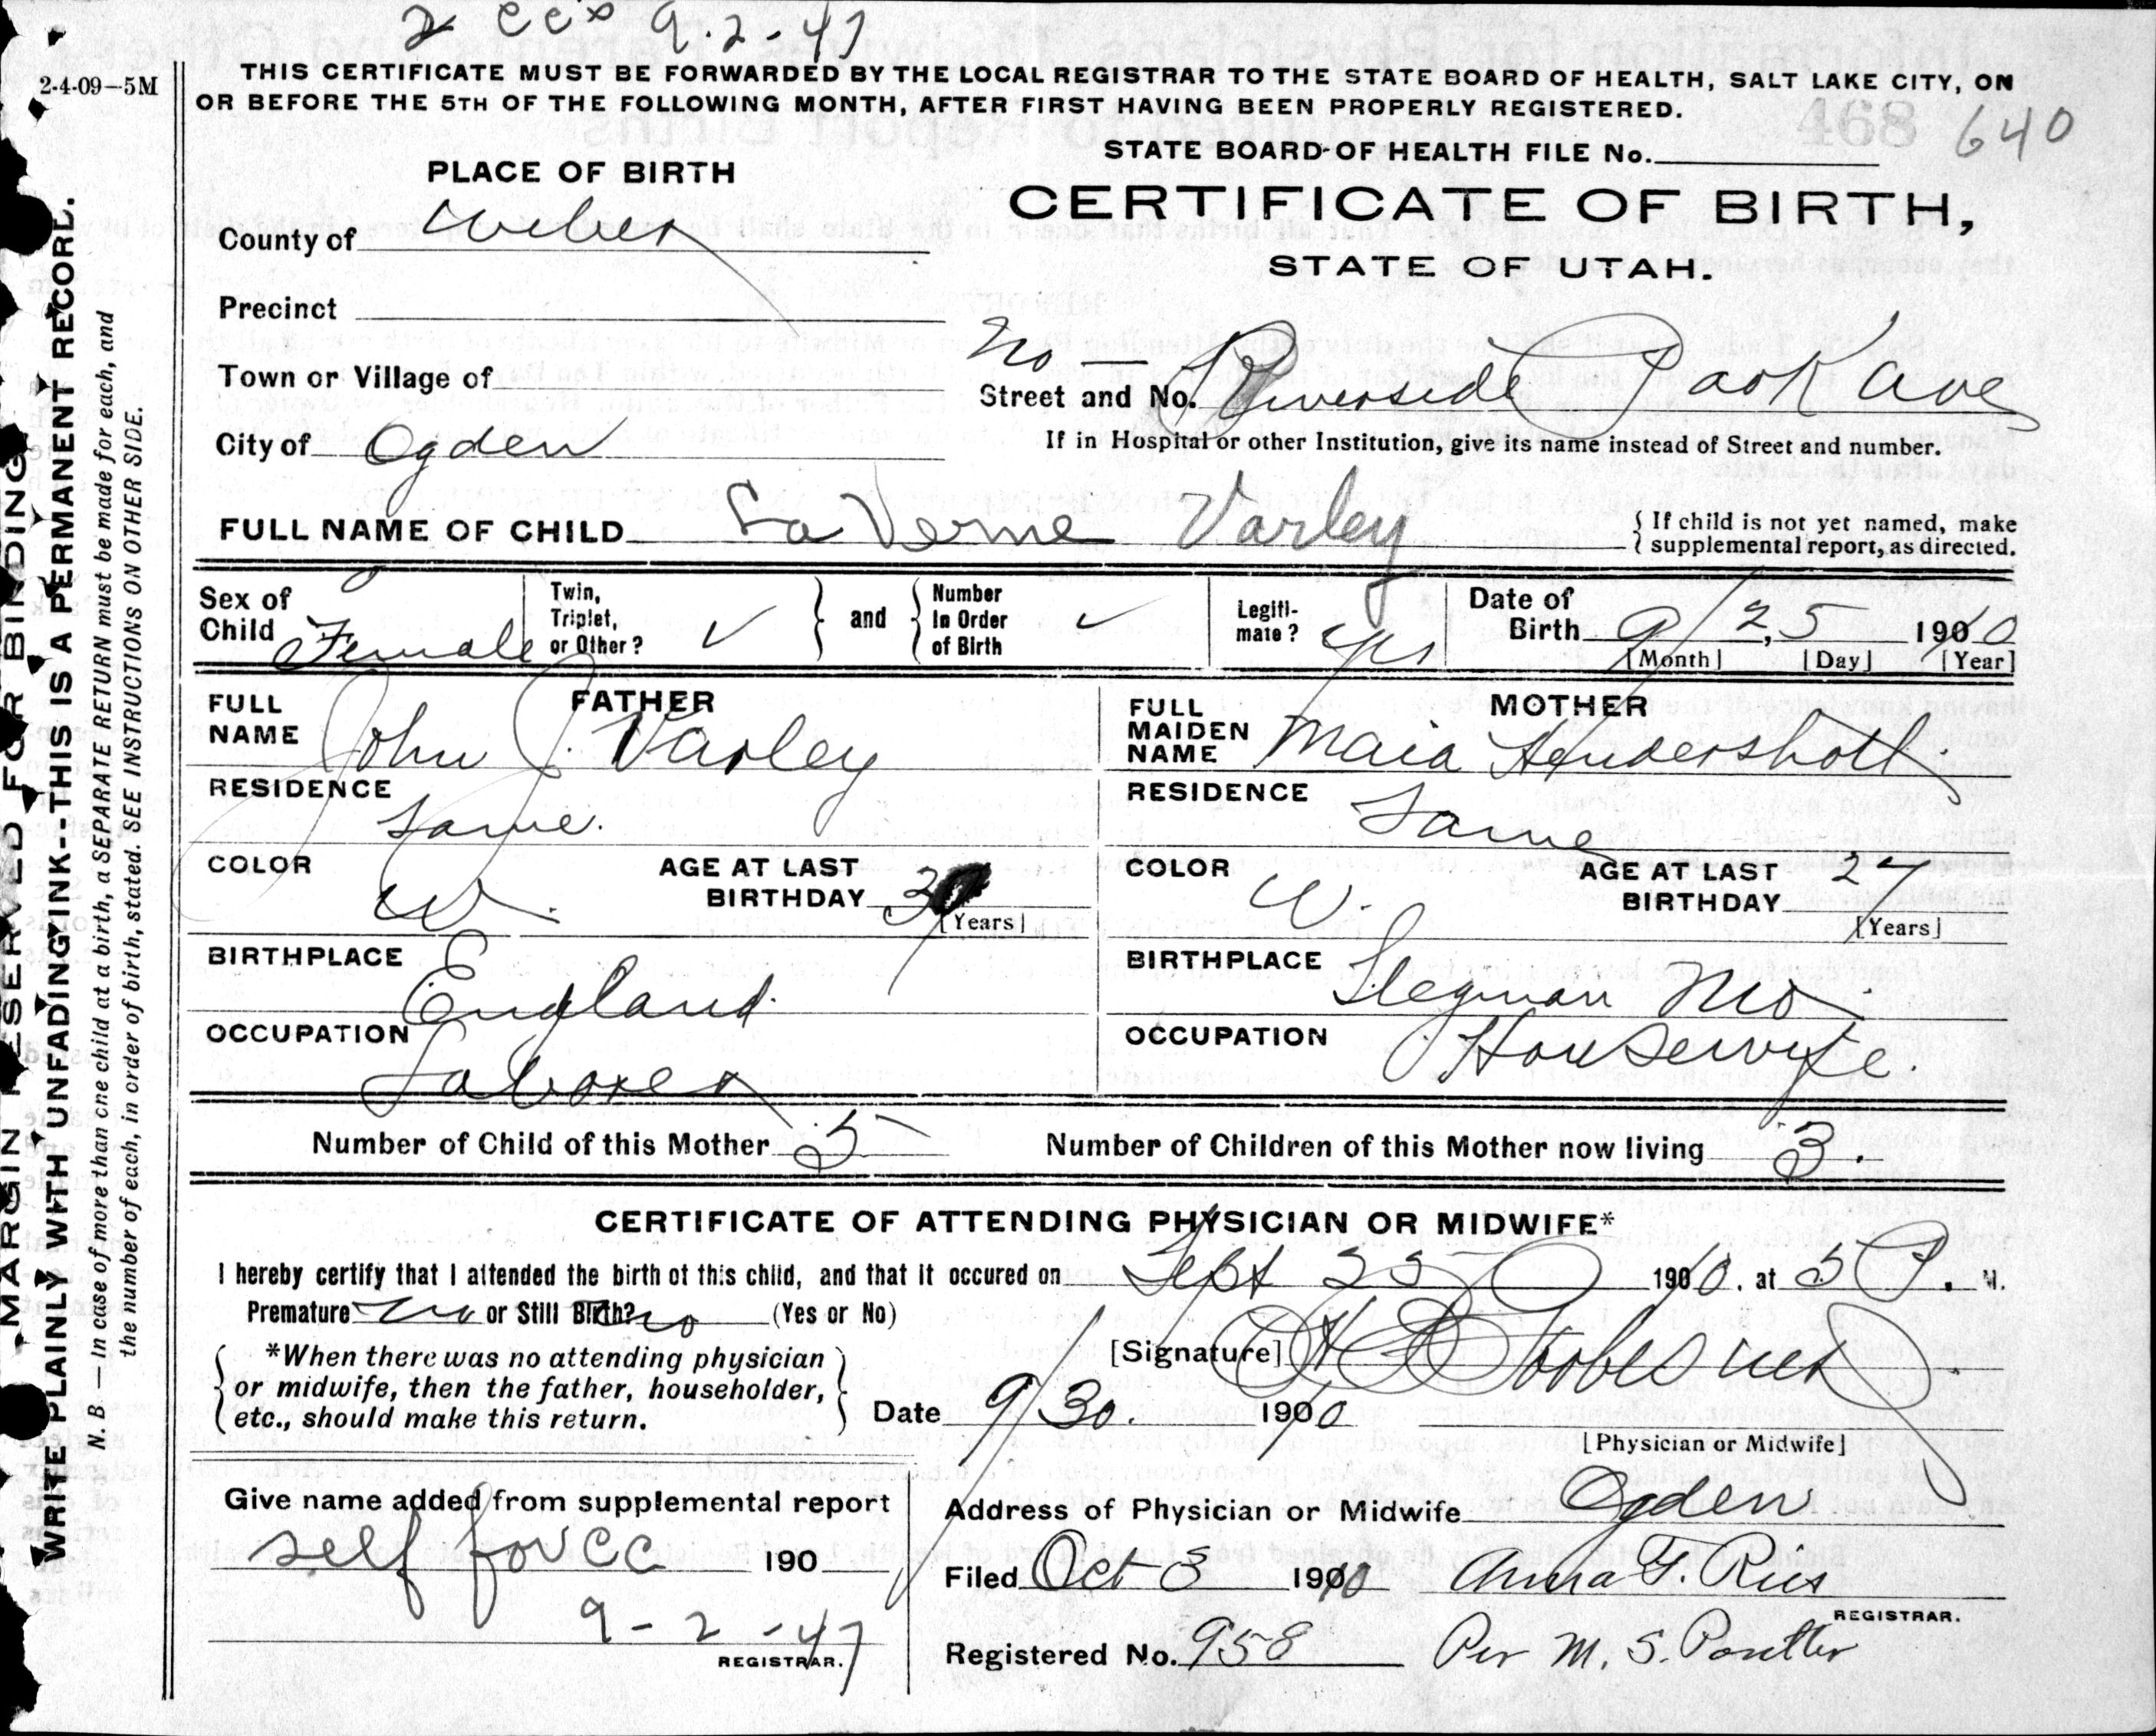 2 cc's 9-2-47
2-4-09—5M
THIS CERTIFICATE MUST BE FORWARDED BY THE LOCAL REGISTRAR TO THE STATE BOARD OF HEALTH, SALT LAKE CITY, ON
OR BEFORE THE 5TH OF THE FOLLOWING MONTH, AFTER FIRST HAVING BEEN PROPERLY REGISTERED.
468 640
STATE BOARD OF HEALTH FILE No.
PLACE OF BIRTH
CERTIFICATE OF BIRTH,
STATE OF UTAH.
County of Weber
Precinct
Town or Village of
No —
Street and No. Riverside Park Ave
City of Ogden
If in Hospital or other Institution, give its name instead of Street and number.
FULL NAME OF CHILD La Verne Varley
If child is not yet named, make
supplemental report, as directed.
Sex of Child Female
Twin, Triplet, or Other? ✓
and
Number In Order of Birth ✓
Legiti-mate? yes
Date of Birth 9/25, 1910
[Month] [Day] [Year]
FATHER
FULL NAME John J. Varley
RESIDENCE same.
COLOR W.
AGE AT LAST BIRTHDAY
[Years]
BIRTHPLACE England.
OCCUPATION Laborer
MOTHER
FULL MAIDEN NAME Maia Hendershott.
RESIDENCE Same
COLOR W.
AGE AT LAST BIRTHDAY 27
[Years]
BIRTHPLACE Mo.
OCCUPATION Housewife.
Number of Child of this Mother 5
Number of Children of this Mother now living 3.
CERTIFICATE OF ATTENDING PHYSICIAN OR MIDWIFE*
I hereby certify that I attended the birth of this child, and that it occured on Sept 25 1910. at 5 P. M.
Premature no or Still Birth? no (Yes or No)
*When there was no attending physician
or midwife, then the father, householder,
etc., should make this return.
[Signature]
Date 9/30. 1910
[Physician or Midwife]
Give name added from supplemental report
self for CC 190
9-2-47
REGISTRAR.
Address of Physician or Midwife Ogden
Filed Oct 3 1910 Anna F. Ries
REGISTRAR.
Registered No. 958 Per M. S.
MARGIN RESERVED FOR BINDING
WRITE PLAINLY WITH UNFADING INK--THIS IS A PERMANENT RECORD.
N. B.—In case of more than one child at a birth, a SEPARATE RETURN must be made for each, and
the number of each, in order of birth, stated. SEE INSTRUCTIONS ON OTHER SIDE.